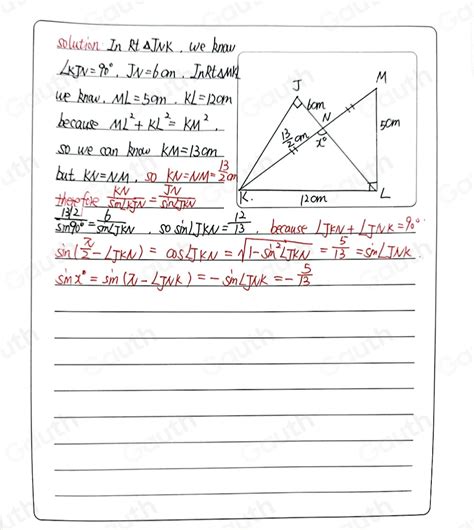 solution: In Rt△JNK, we know
∠KJN=90°, JN=6cm, InRt△MKL
we know, ML=5cm, KL=12cm
because ML²+KL²=KM²,
so we can know KM=13cm
but KN=NM, so KN=NM=13/2cm
therefore KN/sin∠KJN=JN/sin∠JKN
13/2/sin90°=6/sin∠JKN, so sin∠JKN=12/13, because ∠JKN+∠JNK=90°
sin(π/2-∠JKN)=cos∠JKN=√1-sin²∠JKN=5/13=sin∠JNK
sin x°=sin(π-∠JNK)=-sin∠JNK=-5/13
J
M
6cm
N
13/2cm
x°
5cm
K
12cm
L
Gauth